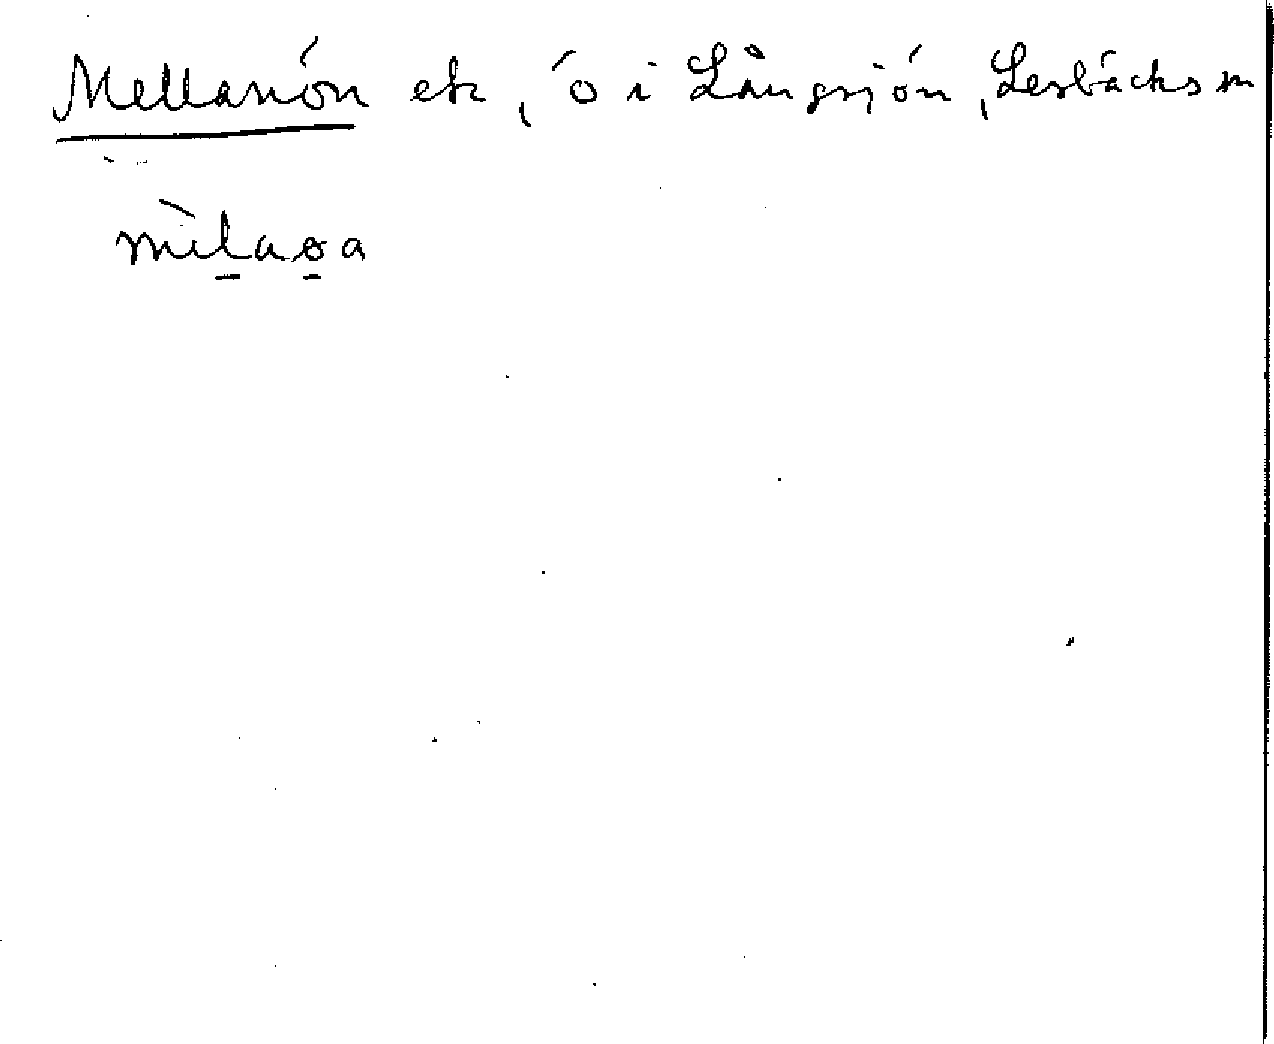 Mellanön ek, ö i Långsjön, Lerbäcks sn
mìlaøa